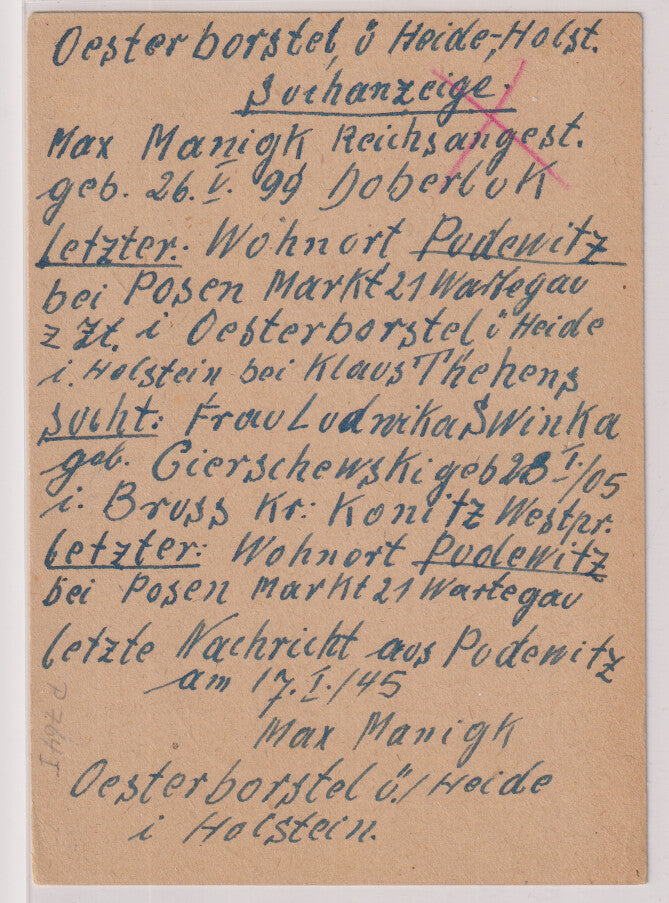 Oesterborstel, ü Heide-, Holst.
Suchanzeige.
Max Manigk Reichsangest.
geb. 26. V. 99 Doberluk
letzter: Wohnort Pudewitz
bei Posen Markt 21 Wartegau
z Zt. i Oesterborstel ü Heide
i. Holstein bei Klaus Thehens
sucht: Frau Ludwika Swinka
geb. Gierschewski geb 28 I./05
i. Bruss Kr: Konitz Westpr.
letzter: Wohnort Pudewitz
bei Posen Markt 21 Wartegau
letzte Nachricht aus Pudewitz
am 17. I./45
Max Manigk
Oesterborstel ü/ Heide
i Holstein.